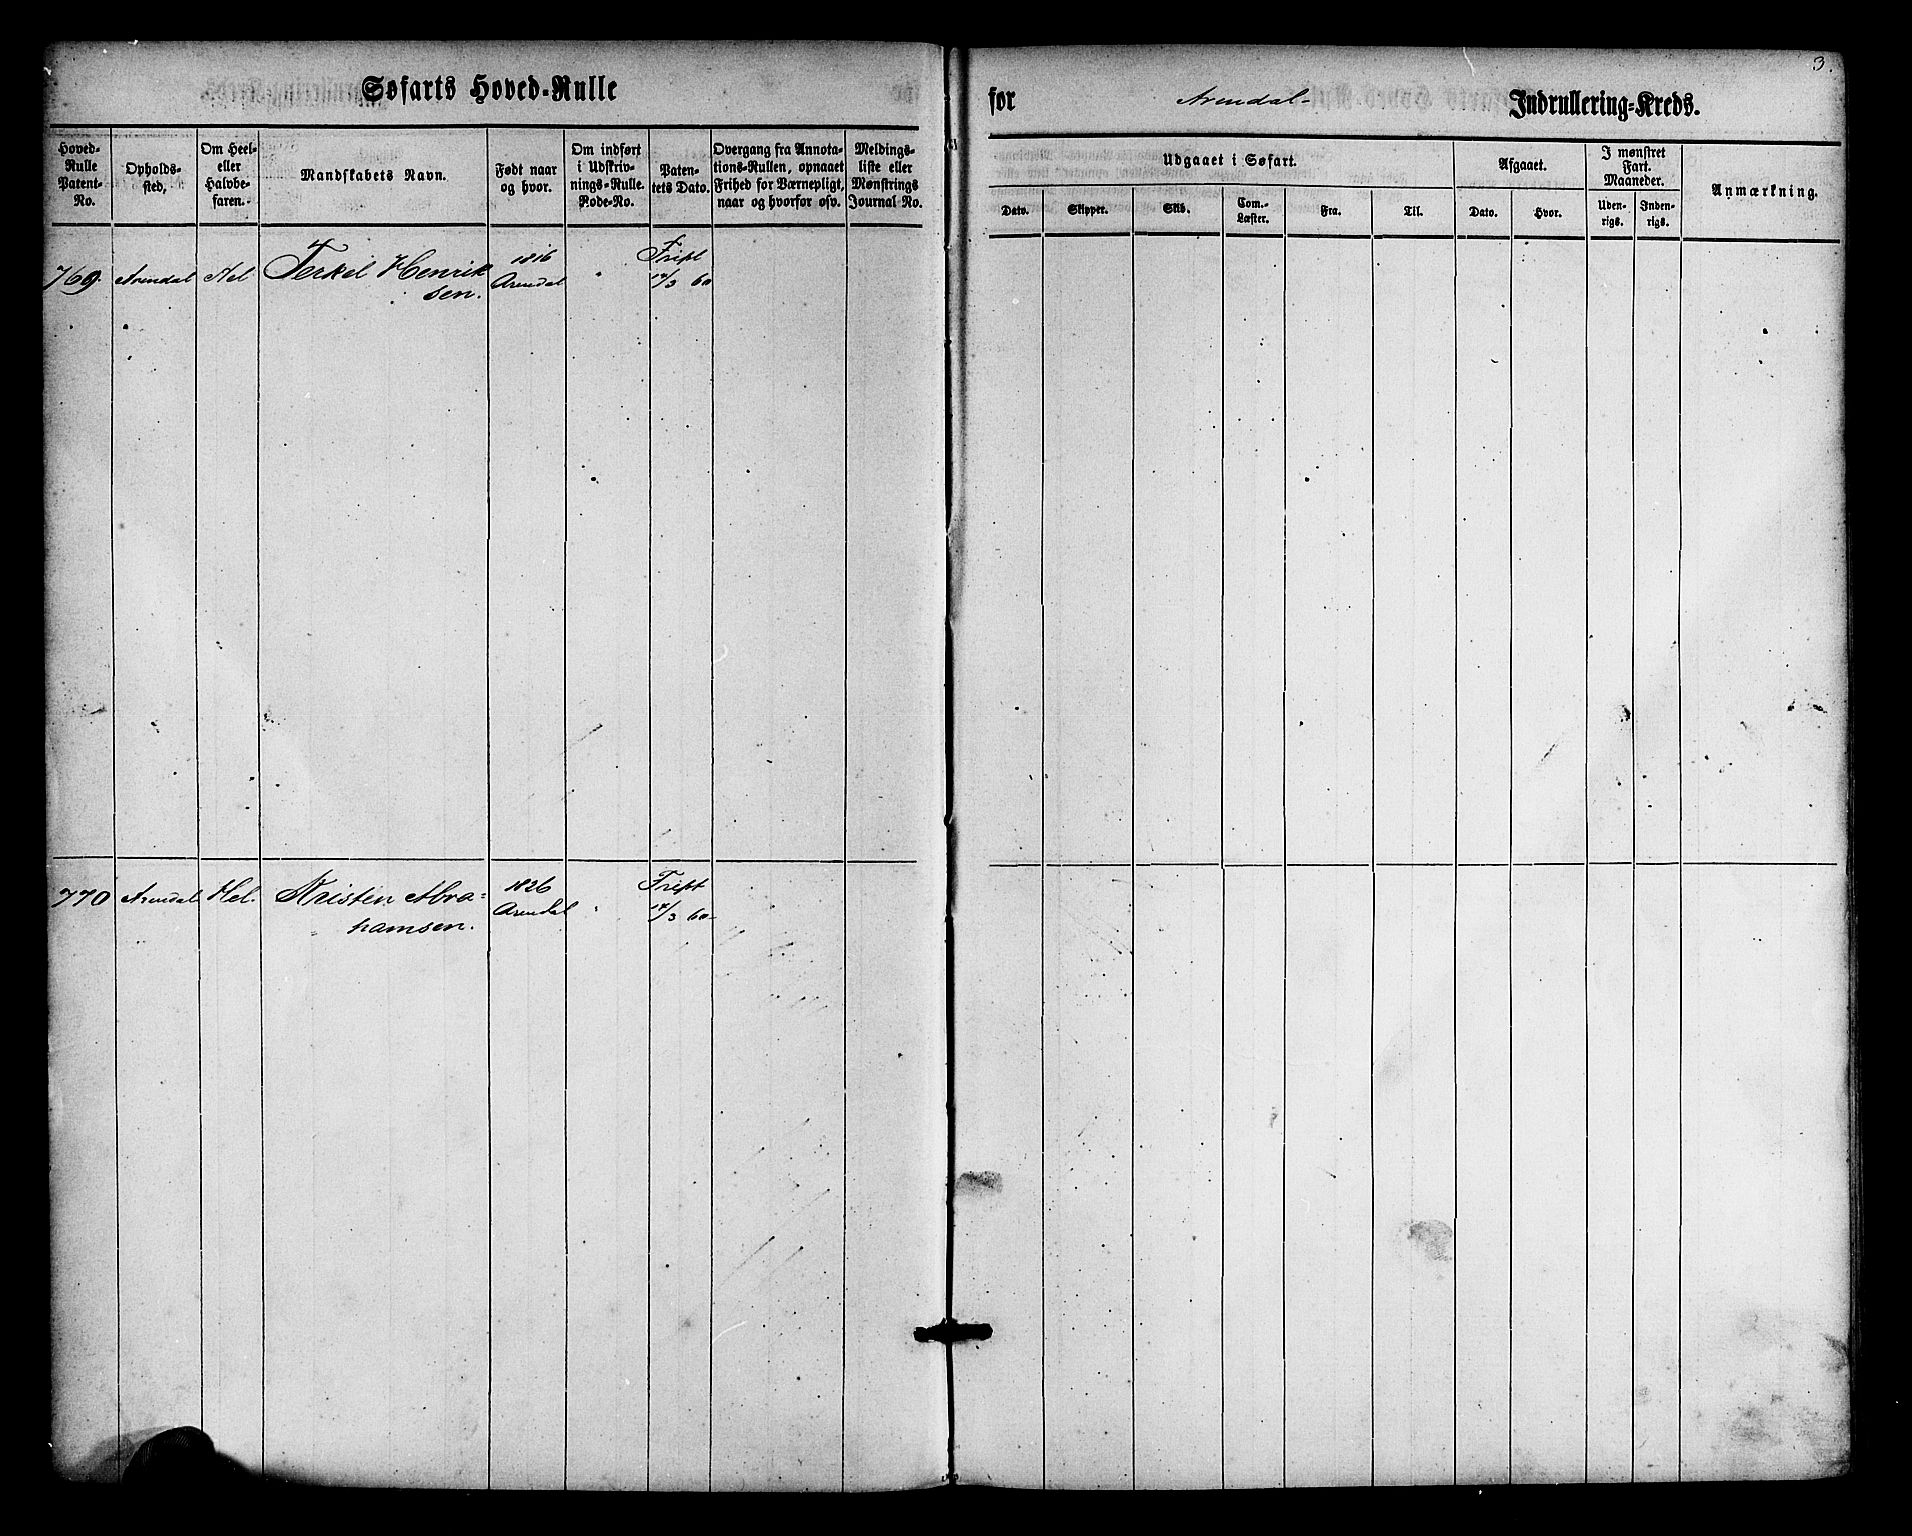 3.
Søfarts Hoved-Rulle
for Arendal Indrullering-Kreds.
Hoved-
Rulle
Patent-
No.
Opholds-
sted,
Om Heel-
eller
Halvbe-
faren.
Mandskabets Navn.
Født naar
og hvor.
Om indført
i Udskriv-
nings-Rulle.
Rode-No.
Paten-
tets Dato.
Overgang fra Annota-
tions-Rullen, opnaaet
Frihed for Værnepligt,
naar og hvorfor osv.
Meldings-
liste eller
Mønstrings
Journal-No.
Udgaaet i Søfart.
Dato.
Skipper.
Skib.
Com.-
Læster.
Fra.
Til.
Afgaaet.
Dato.
Hvor.
I mønstret
Fart.
Maaneder.
Uden-
rigs.
Inden-
rigs.
Anmærkning.
769.
Arendal
Hel
Terkel Henrik
sen.
1816
Arendal
"
17/3 60
770
Arendal
Hel.
Kristen Abra=
hamsen.
1826
Arendal
"
17/3 60